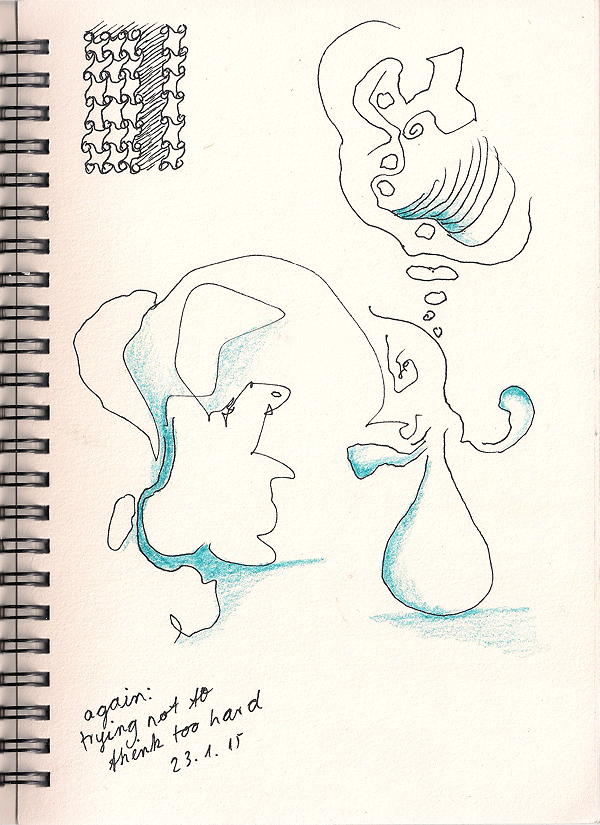 again:
trying not to
think too hard
23.1.15